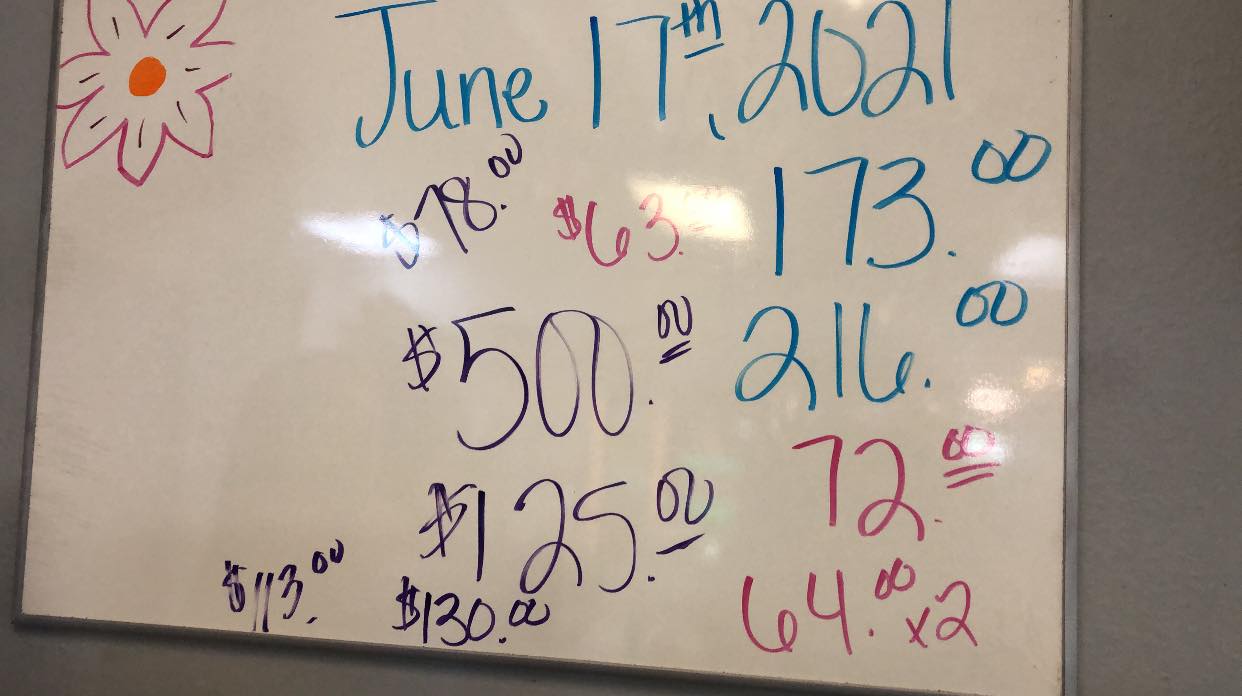 June 17th, 2021
$78.00 $63. 173.00
$500.00 216.00
$125.00 72.00
$113.00 $130.00 64.00 x2